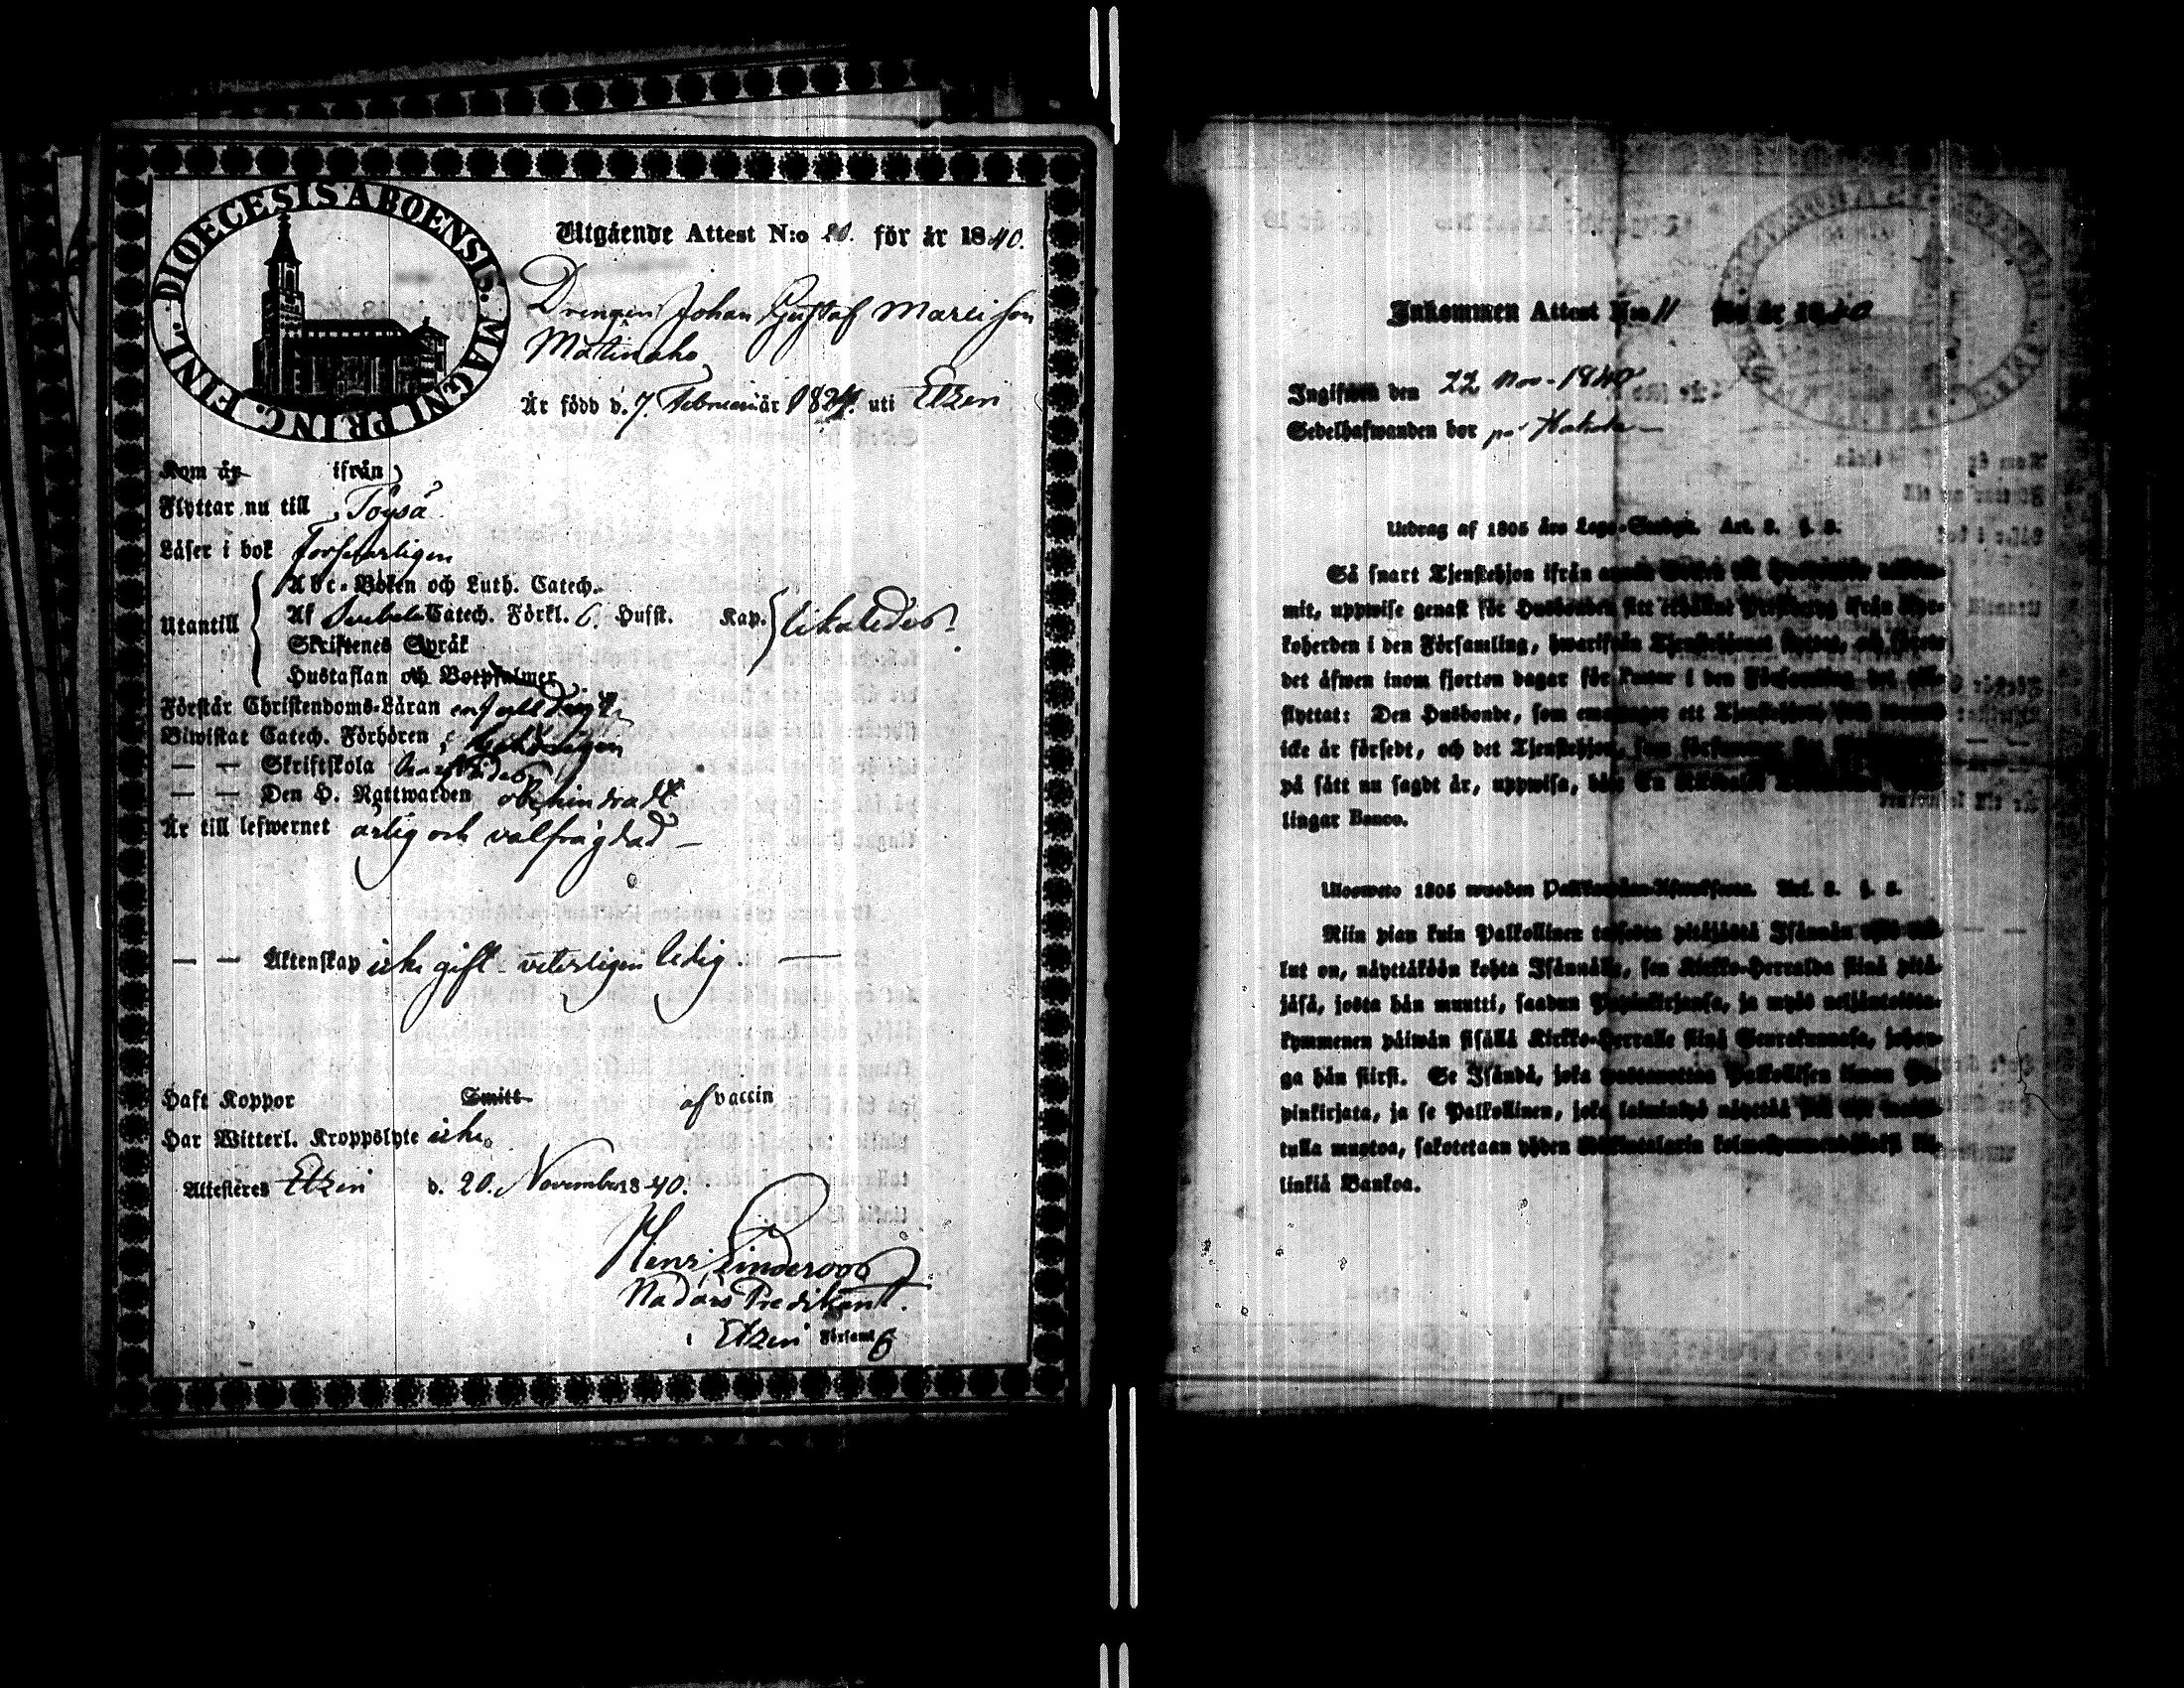 DIOECESIS ABOENSIS. MAGNI PRINC. FINL.
Utgående Attest N:o 20. för år 1840.
Drengen Johan Gustaf Mareisson
Matinaho
Är född d. 7. Februari år 1824. uti Etzeri
Kom år ifrån
Flyttar nu till Töysä
Läser i bok Forsvarligen
Utantill
Abc-Boken och Luth. Catech.
Af Svebelii Catech. Förkl. 6. Husst. Kap. likaledes.
Skriftenes Språk
Hustaflan och Botpsalmer
Förstår Christendoms-Läran enfaldigt
Biwistat Catech. Förhören behörigen
— — Skriftskola likaledes
— — Den H. Nattwarden obehindradt
Är till lefwernet ärlig och välfrägdad —
— — Äktenskap icke gift - veterligen ledig. —
Haft Koppor Smitt af vaccin
Har Witterl. Kroppslyte icke.
Attesteres Etzeri d. 20. November 1840.
Henr. Linderoos
Nådårs Predikant.
i Etzeri Församl.
Inkommen Attest N:o 11 för år 1840
Ingifwen den 22 Nov. 1840
Sedelhafwanden bor på Hakola
Utdrag af 1805 års Lego-Stadga. Art. 3. §. 8.
Så snart Tjenstehjon ifrån
mit, uppwise genast för Husbonden sitt erhållne Prestbetyg ifrån Kyr-
koherden i den Församling, hwarifrån Tjenstehjonet
det äfwen inom fjorton dagar för i den Församling
flyttat: Den Husbonde, som emottager ett Tjenstehjon,
icke är försedt, och det Tjenstehjon, som försummar
på sätt nu sagdt är, uppwisa, böte En
lingar Banco.
Uloswето 1805 wuoden Palkkaus-Asetuksesta. Art. 3. §. 8.
Niin pian kuin Palkollinen toisesta pitäjästä Isännän
lut on, näyttäköön kohta Isännälle, sen Kirkko-Herralda siinä pitä-
jäsä, josta hän muutti, saadun Papinkirjansa, ja myös neljäntoista-
kymmenen päiwän sisällä Kirkko-Herralle siinä Seurakunnasa, johon-
ga hän siirsi. Se Isändä, joka wastaanottaa Palkollisen ilman Pa-
pinkirjata, ja se Palkollinen, joka laiminlyö näyttää
tulla muotoa, sakotetaan yhden Riikintalarin
linkiä Bankoa.